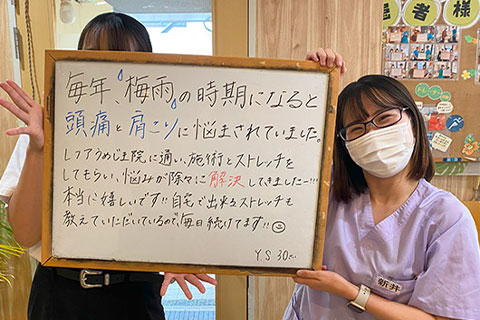 毎年、梅雨の時期になると
頭痛と肩こりに悩まされていました。
レフアうめじま院に通い、施術とストレッチを
してもらい、悩みが除々に解決してきましたー!!!
本当に嬉しいです!!自宅で出来るストレッチも
教えていただいているので、毎日続けてます!!
Y.S 30代
患者様
新井